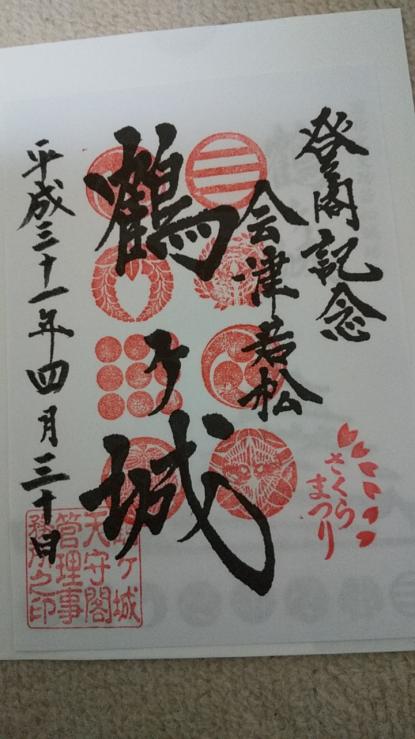 登閣記念
会津若松
鶴ヶ城
平成三十一年四月三十日
さくら
まつり
鶴ヶ城
天守閣
管理事
務所之印